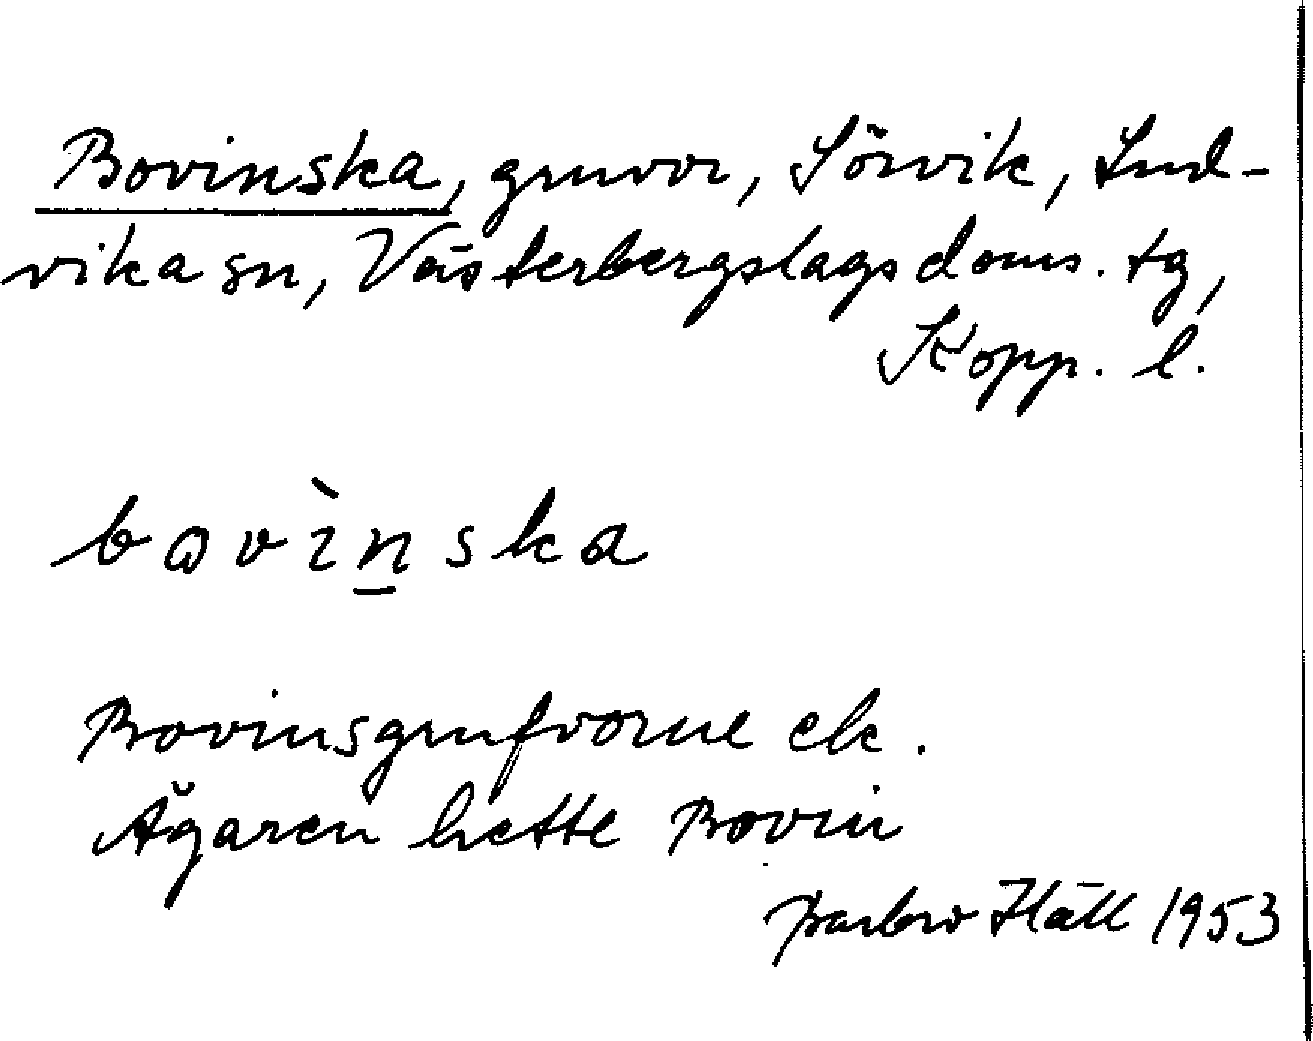 Bovinska, gruvor, Sörvik, Lud-
vika sn, Västerbergslags doms. tg,
Kopp. l.
bovìn̲ska
Bovinsgrufvorne ek.
Ägaren hette Bovin
Barbro Häll 1953